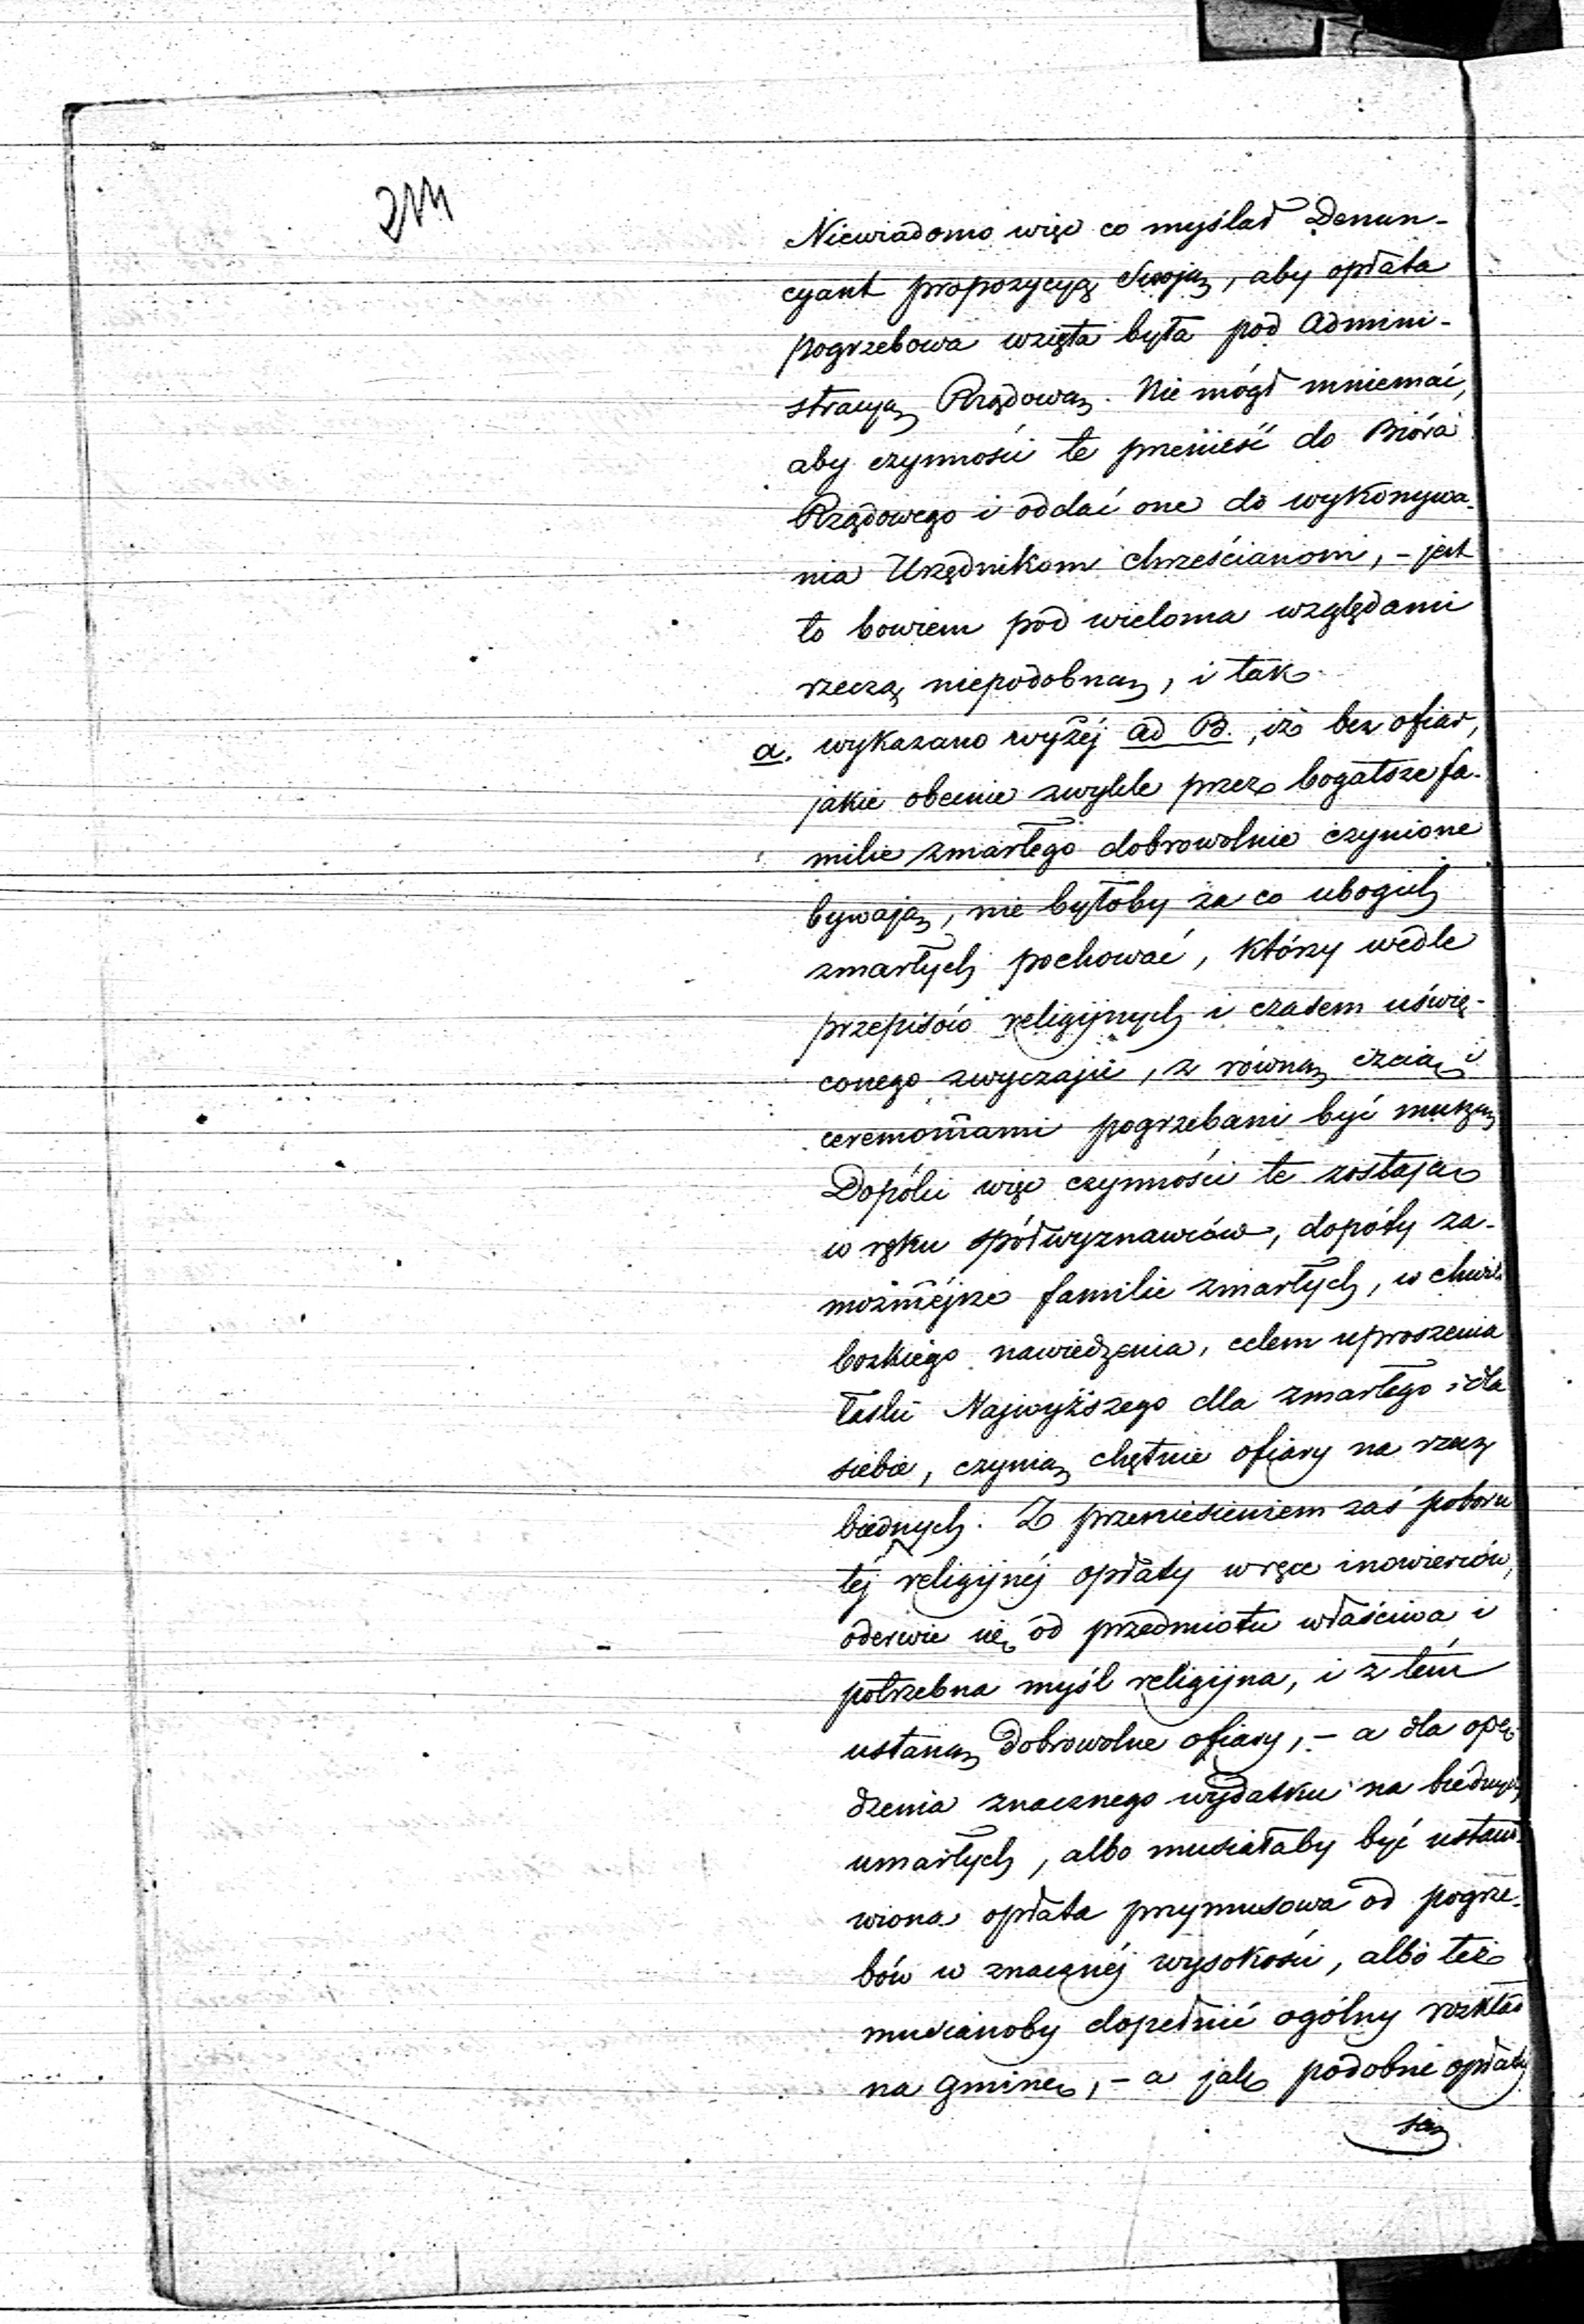 Niewiadomo więc co myślał Denun-
cyant propozycyą Swoją, aby opłata
pogrzebowa wzięta była pod Admini-
stracyą Rządową. Nie mógł mniemać,
aby czynności te przenieść do Bióra
Rządowego i oddać one do wykonywa-
nia Urzędnikom chrześcianom, – jest
to bowiem pod wieloma względami
rzeczą niepodobną, i tak
a. wykazano wyżéj ad B., iż bez ofiar,
jakie obecnie zwykle przez bogatsze fa-
milie zmarłego dobrowolnie czynione
bywają, nie byłoby za co ubogich
zmarłych pochować, którzy wedle
przepisów religijnych i czasem uświę-
conego zwyczaju, z równą czcią i
ceremoniami pogrzebani być muszą
Dopóki więc czynności te zostają
w ręku spółwyznawców, dopóty za-
możniéjsze familie zmarłych, w chwili
bozkiego nawiedzenia, celem uproszenia
łaski Najwyższego dla zmarłego i dla
siebie, czynią chętnie ofiary na rzecz
biednych. Z przeniesieniem zaś poboru
téj religijnéj opłaty w ręce inowierców,
oderwie się od przedmiotu właściwa i
potrzebna myśl religijna, i z tém
ustaną dobrowolne ofiary, – a dla opę-
dzenia znacznego wydatku na biednych
umarłych, albo musiałaby być ustano-
wiona opłata przymusowa od pogrze-
bów w znacznéj wysokości, albo też
musianoby dopełnić ogólny rozkład
na gminę, – a jak podobne opłaty
są